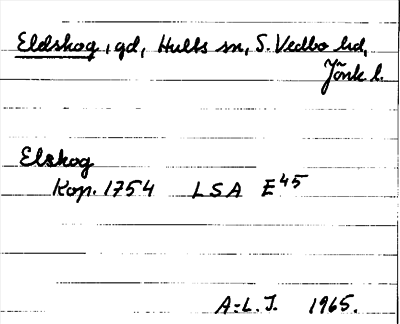 Eldskog, gd, Hults sn, S. Vedbo hd,
Jönk l.
Elskog
Kop. 1754 LSA E45
A-L. J. 1965.